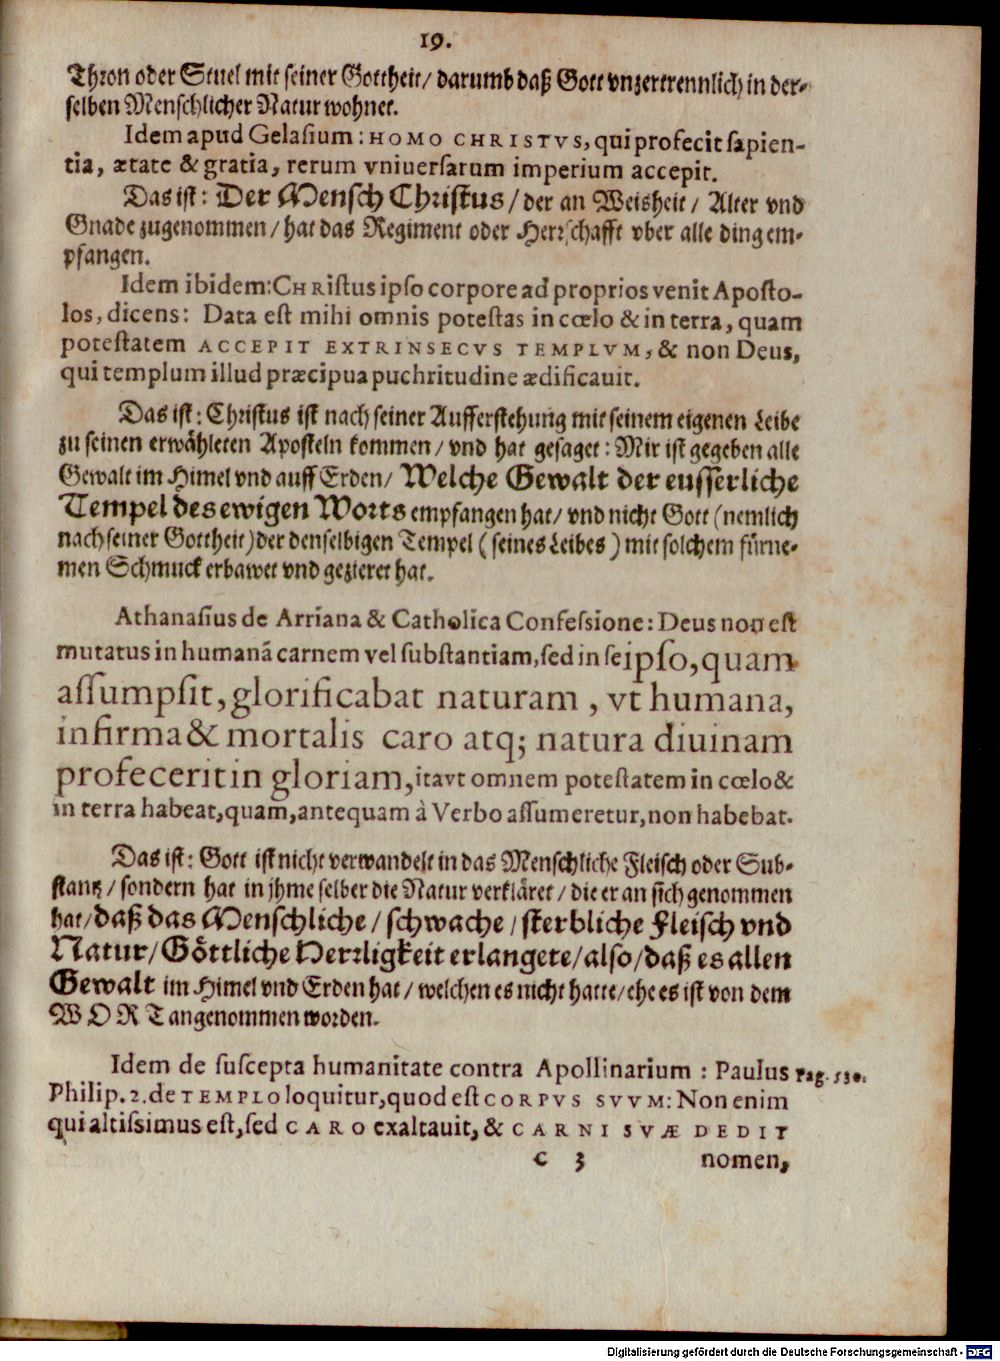 19.
Thron oder Stuel mit seiner Gottheit/ darumb daß Gott vnzertrennlich in der-
selben Menschlicher Natur wohnet.
Idem apud Gelasium: HOMO CHRISTVS, qui profecit sapien-
tia, ætate & gratia, rerum vniuersarum imperium accepit.
Das ist: Der Mensch Christus/ der an Weisheit/ Alter vnd
Gnade zugenommen/ hat das Regiment oder Herrschafft vber alle ding em-
pfangen.
Idem ibidem: CHRistus ipso corpore ad proprios venit Aposto-
los, dicens: Data est mihi omnis potestas in cœlo & in terra, quam
potestatem ACCEPIT EXTRINSECVS TEMPLVM, & non Deus,
qui templum illud præcipua puchritudine ædificauit.
Das ist: Christus ist nach seiner Aufferstehung mit seinem eigenen Leibe
zu seinen erwähleten Aposteln kommen/ vnd hat gesaget: Mir ist gegeben alle
Gewalt im Himel vnd auff Erden/ Welche Gewalt der eusserliche
Tempel des ewigen Worts empfangen hat/ vnd nicht Gott (nemlich
nach seiner Gottheit) der denselbigen Tempel (seines Leibes) mit solchem fürne-
men Schmuck erbawet vnd gezieret hat.
Athanasius de Arriana & Catholica Confessione: Deus non est
mutatus in humanã carnem vel substantiam, sed in seipso, quam
assumpsit, glorificabat naturam, vt humana,
infirma & mortalis caro atq; natura diuinam
profecerit in gloriam, ita vt omnem potestatem in cœlo &
in terra habeat, quam, antequam à Verbo assumeretur, non habebat.
Das ist: Gott ist nicht verwandelt in das Menschliche Fleisch oder Sub-
stantz/ sondern hat in jhme selber die Natur verkläret/ die er an sich genommen
hat/ daß das Menschliche/ schwache/ sterbliche Fleisch vnd
Natur/ Göttliche Herrligkeit erlangete/ also/ daß es allen
Gewalt im Himel vnd Erden hat/ welchen es nicht hatte/ ehe es ist von dem
WORT angenommen worden.
Idem de suscepta humanitate contra Apollinarium: Paulus pag. 530.
Philip. 2. de TEMPLO loquitur, quod est CORPVS SVVM: Non enim
qui altissimus est, sed CARO exaltauit, & CARNI SVÆ DEDIT
C 3 nomen,
Digitalisierung gefördert durch die Deutsche Forschungsgemeinschaft - DFG